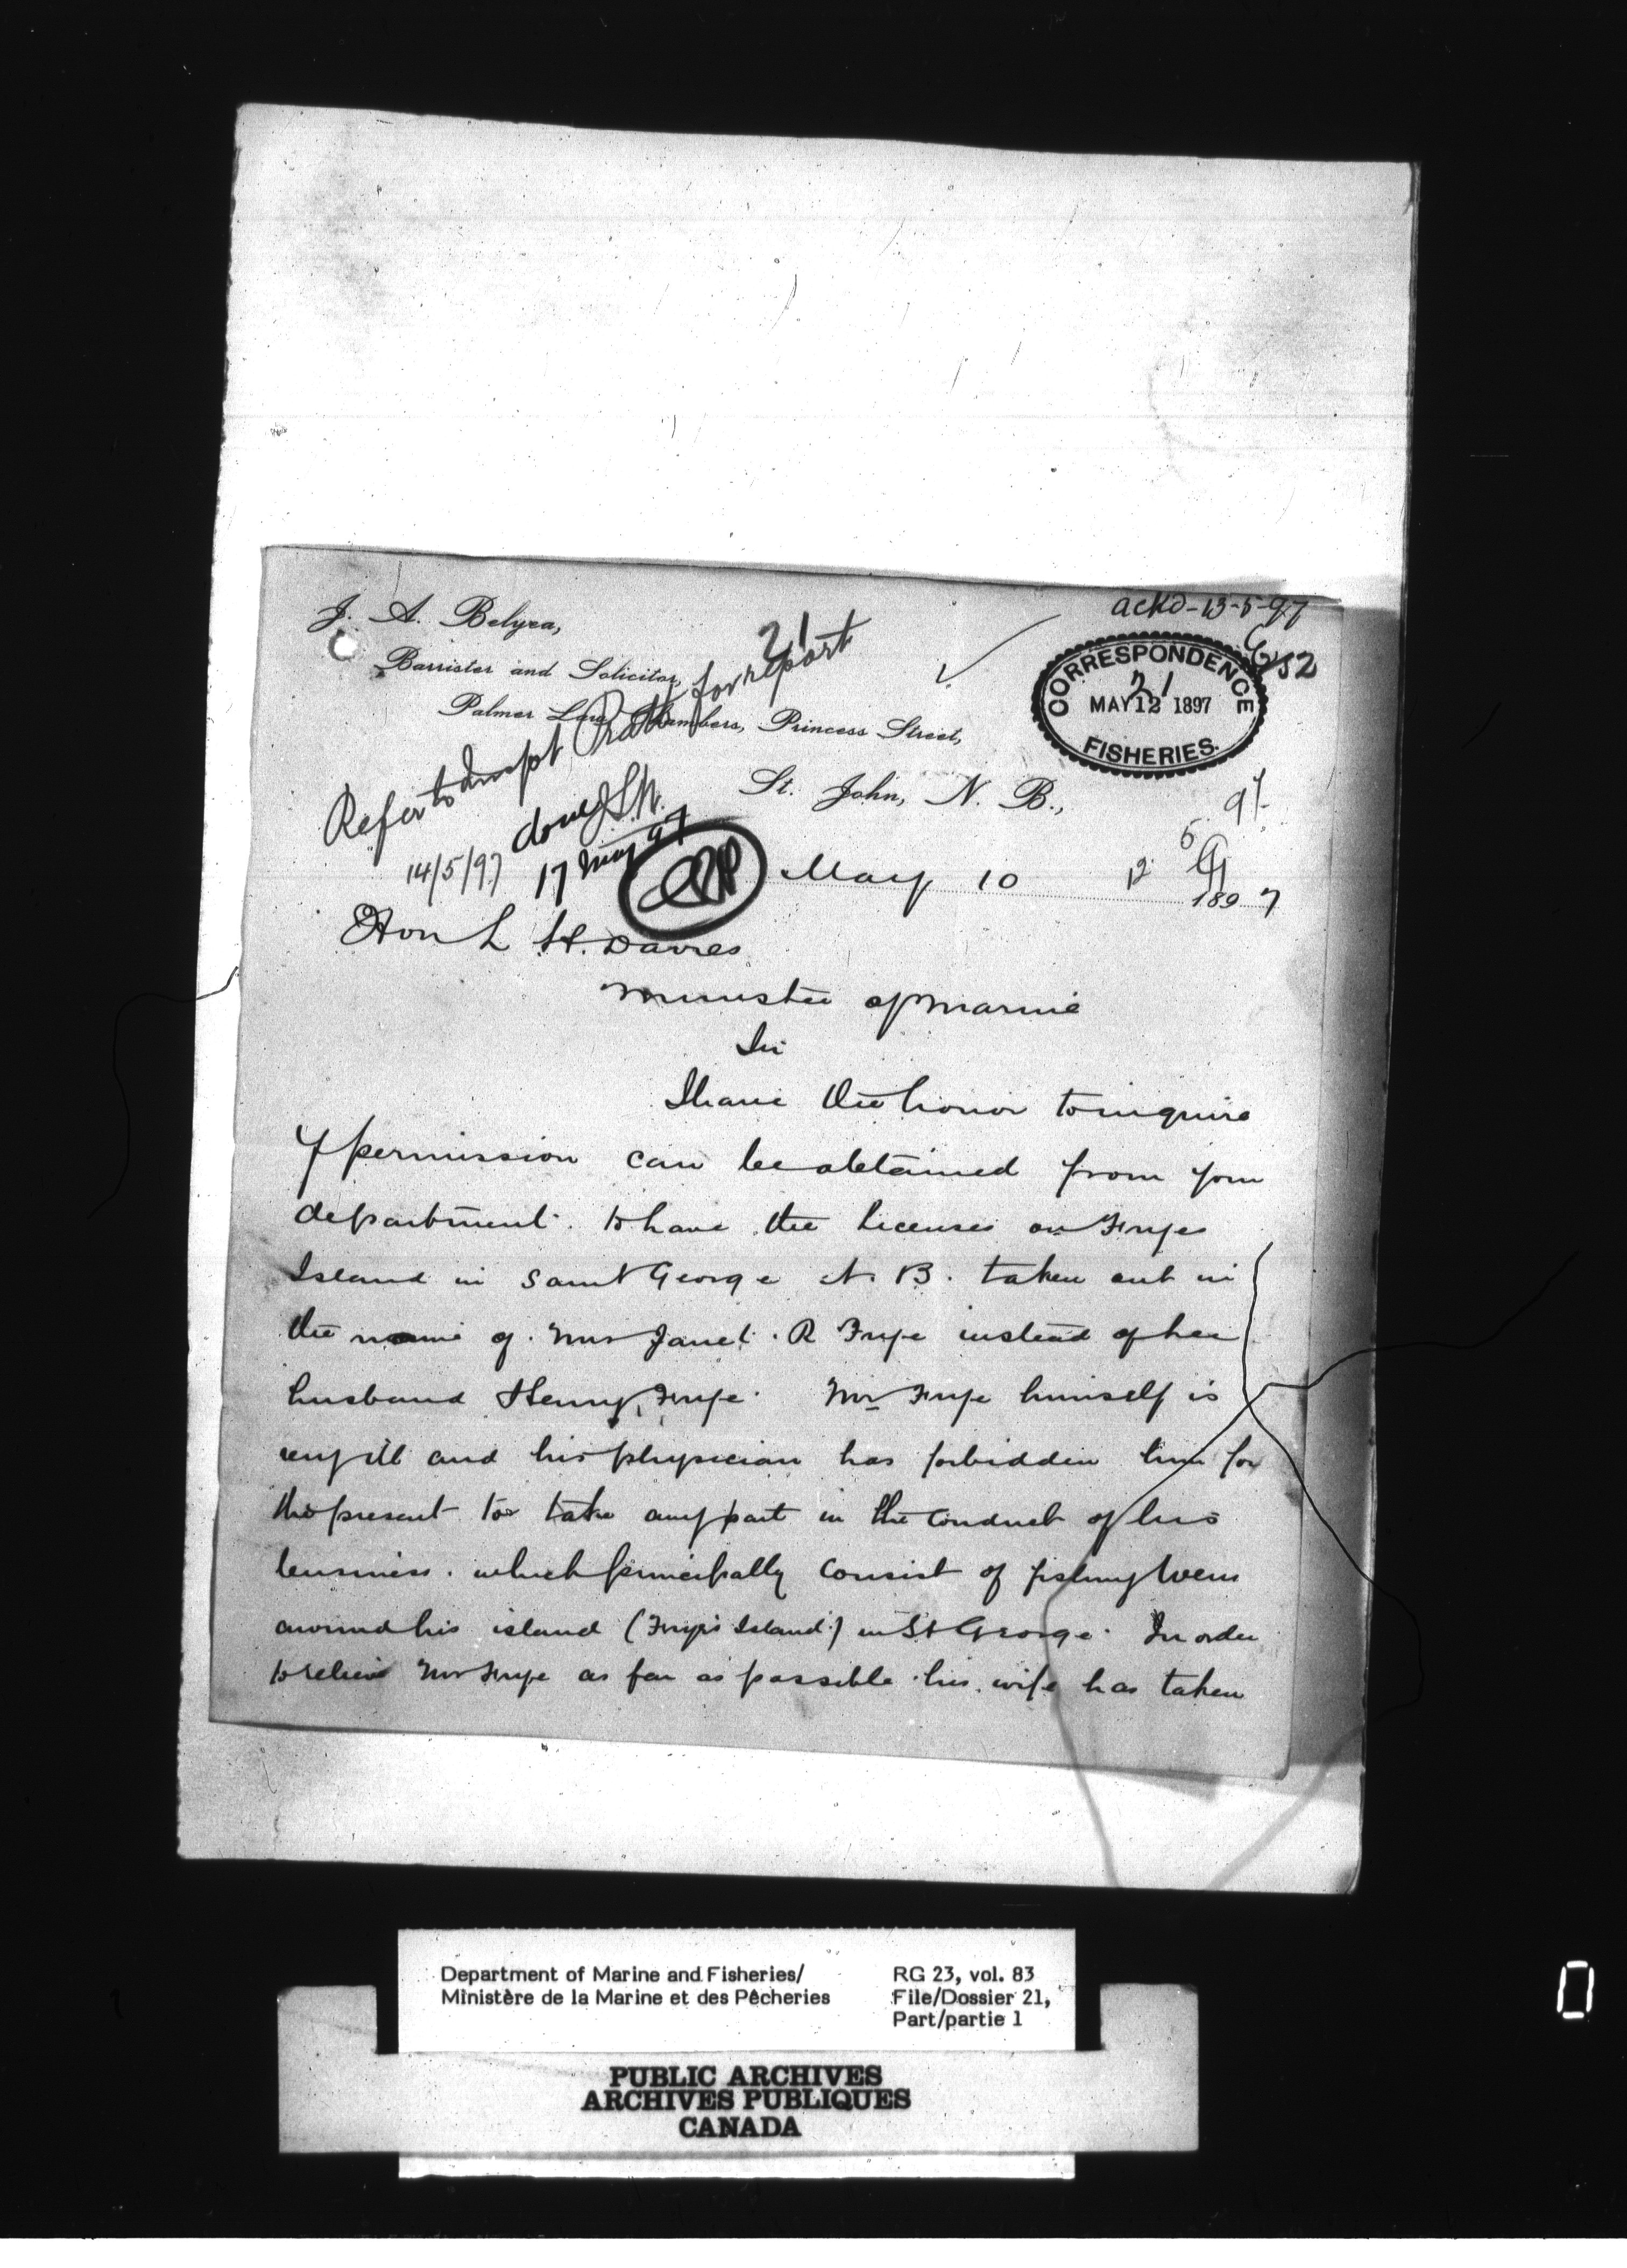 ackd-13-5-97
J. A. Belyea,
Barrister and Solicitor,
Palmer Law Chambers, Princess Street,
St. John, N. B.,
21
Refer to Inspt Pratt for report
14/5/97
done J.S.W.
17 May 97
CORRESPONDENCE
21
MAY 12 1897
FISHERIES.
May 10 1897
Hon L H. Davies
Minister of Marine
Sir
I have the honor to inquire
if permission can be obtained from your
department. to have the licenses on Fryes
Island in Saint George N. B. taken out in
the name of. Mrs Janet. R Frye instead of her
husband Henry Frye. Mr Frye himself is
very ill and his physician has forbidden him for
the present to take any part in the conduct of his
business. which principally consist of fishing weirs
around his island (Frye's Island.) in St George. In order
to relieve Mr Frye as far as possible his wife has taken
Department of Marine and Fisheries/
Ministère de la Marine et des Pêcheries
RG 23, vol. 83
File/Dossier 21,
Part/partie 1
PUBLIC ARCHIVES
ARCHIVES PUBLIQUES
CANADA